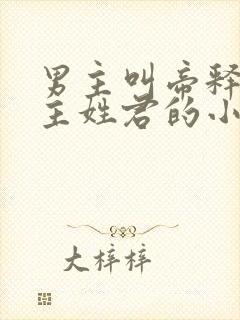 男主叫帝释
主姓君的小
大梓梓